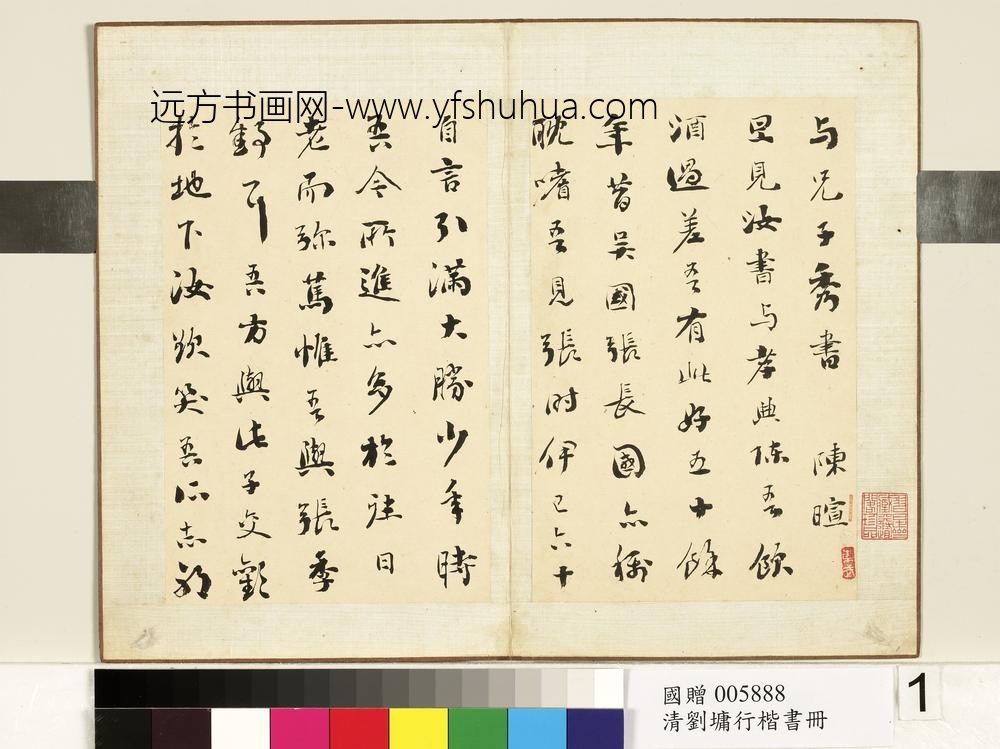 远方书画网-www.yfshuhua.com
与兄子秀書 陳暄
旦見汝書与孝典陳吾飲
酒過差吾有此好五十餘
年昔吴國張長國亦稱
耽嗜吾見張时伊已六十
自言引滿大勝少年時
吾今所進亦多於往日
老而弥篤惟吾與張季
舒耳吾方與此子交歡
於地下汝欲笑吾所志邪
國贈 005888
清劉墉行楷書冊
1